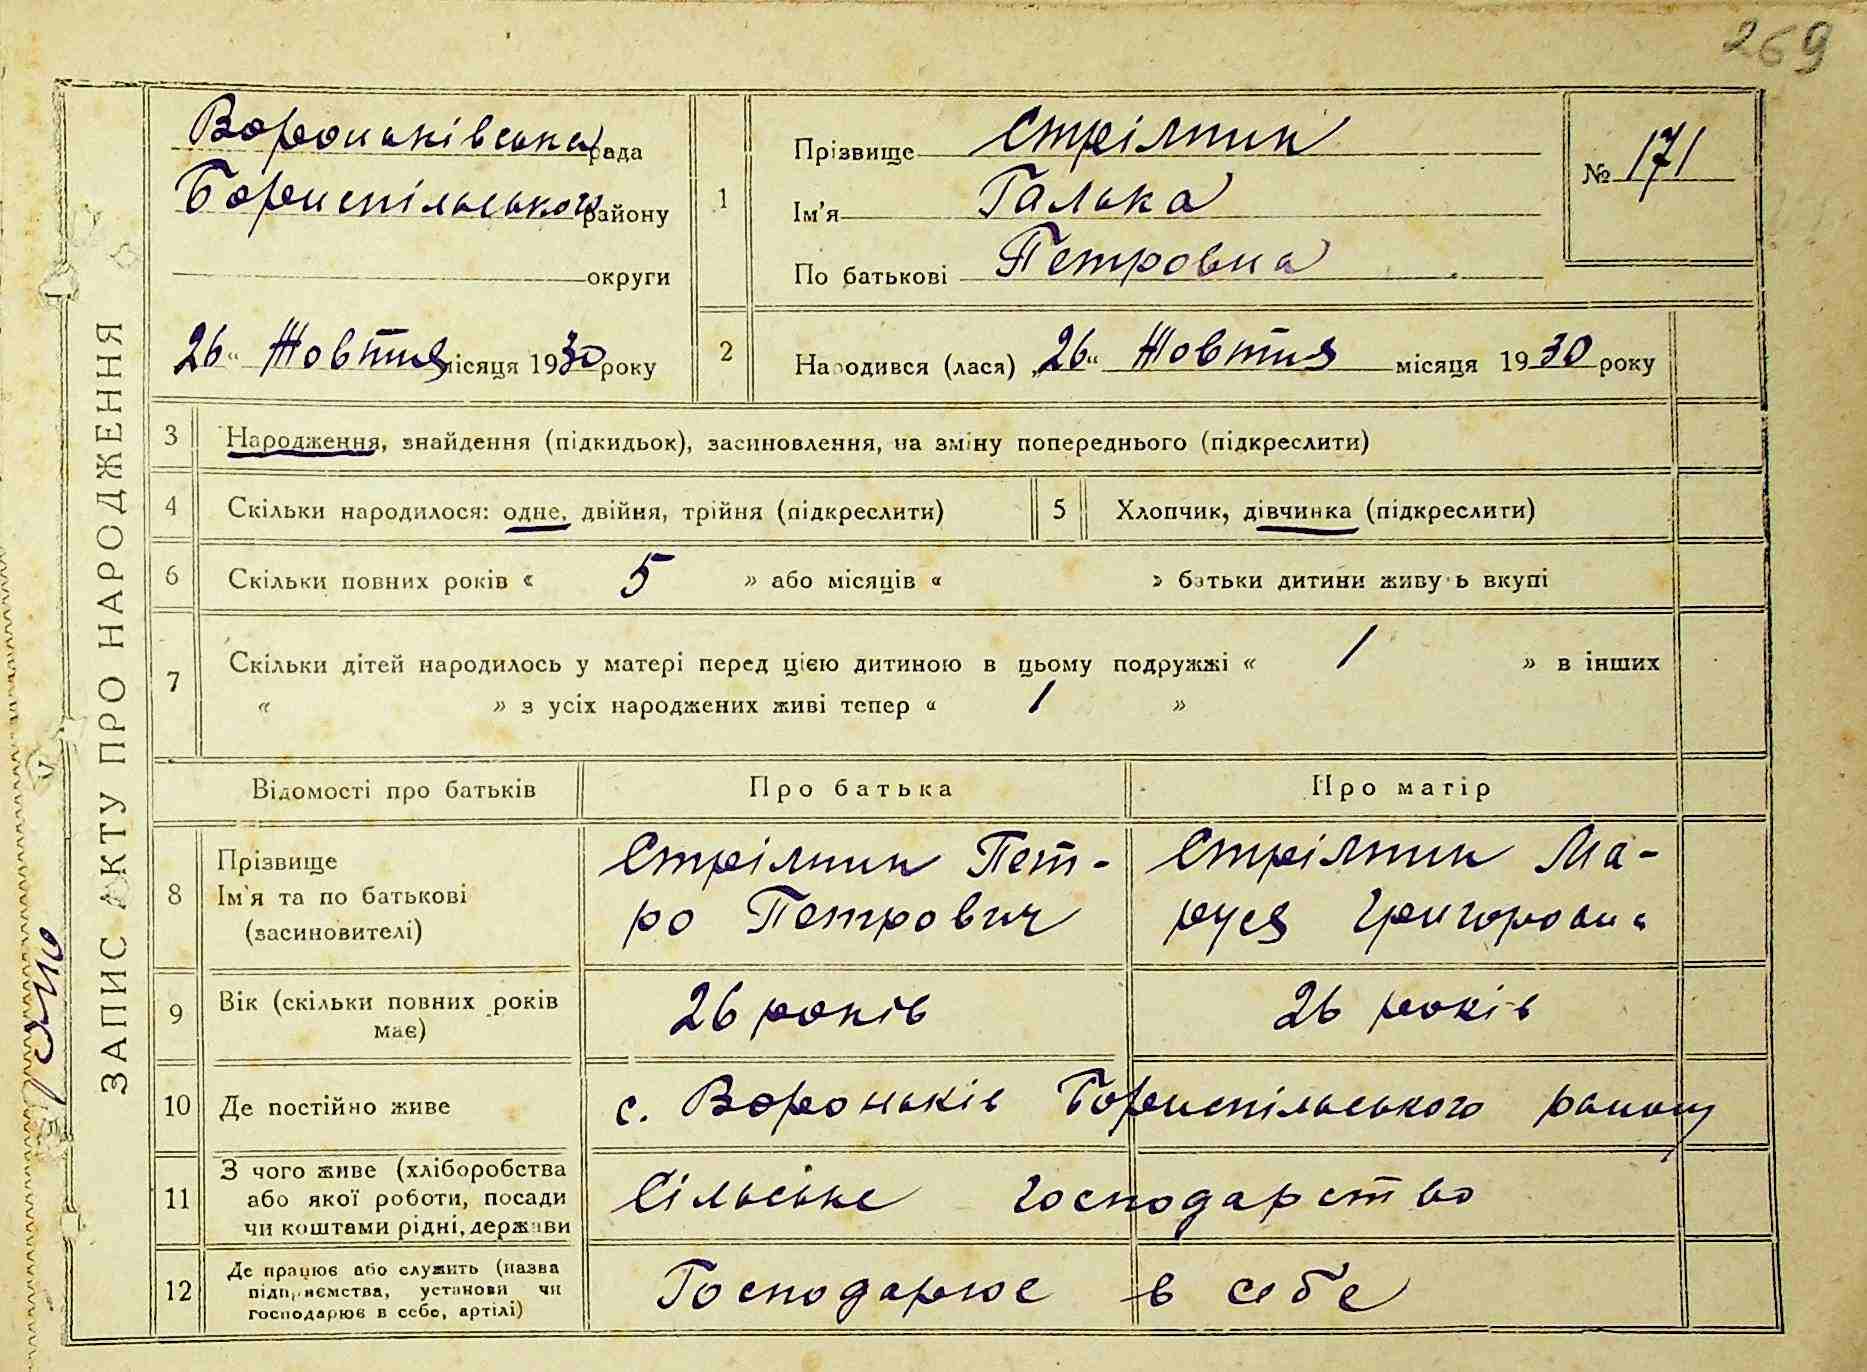 269
ЗАПИС АКТУ ПРО НАРОДЖЕННЯ
Вороньківська рада
Бориспільського району
округи
26 " Жовтня місяця 1930 року
1
Прізвище Стрілник
Ім'я Галька
По батькові Петровна
№ 171
2
Народився (лася) „26" Жовтня місяця 1930 року
3 Народження, знайдення (підкидьок), засиновлення, на зміну попереднього (підкреслити)
4 Скільки народилося: одне, двійня, трійня (підкреслити)
5 Хлопчик, дівчинка (підкреслити)
6 Скільки повних років « 5 » або місяців « » батьки дитини живуть вкупі
7 Скільки дітей народилось у матері перед цією дитиною в цьому подружжі « 1 » в інших
« » з усіх народжених живі тепер « 1 »
Відомості про батьків Про батька Про матір
8 Прізвище
Ім'я та по батькові
(засиновителі)
Стрілник Пет-
ро Петрович
Стрілник Ма-
руся Григоровна
9 Вік (скільки повних років
має)
26 років 26 років
10 Де постійно живе с. Вороньків Бориспільського району
11 З чого живе (хліборобства
або якої роботи, посади
чи коштами рідні, держави
Сільське господарство
12 Де працює або служить (назва
підприємства, установи чи
господарює в себе, артілі)
Господарює в себе